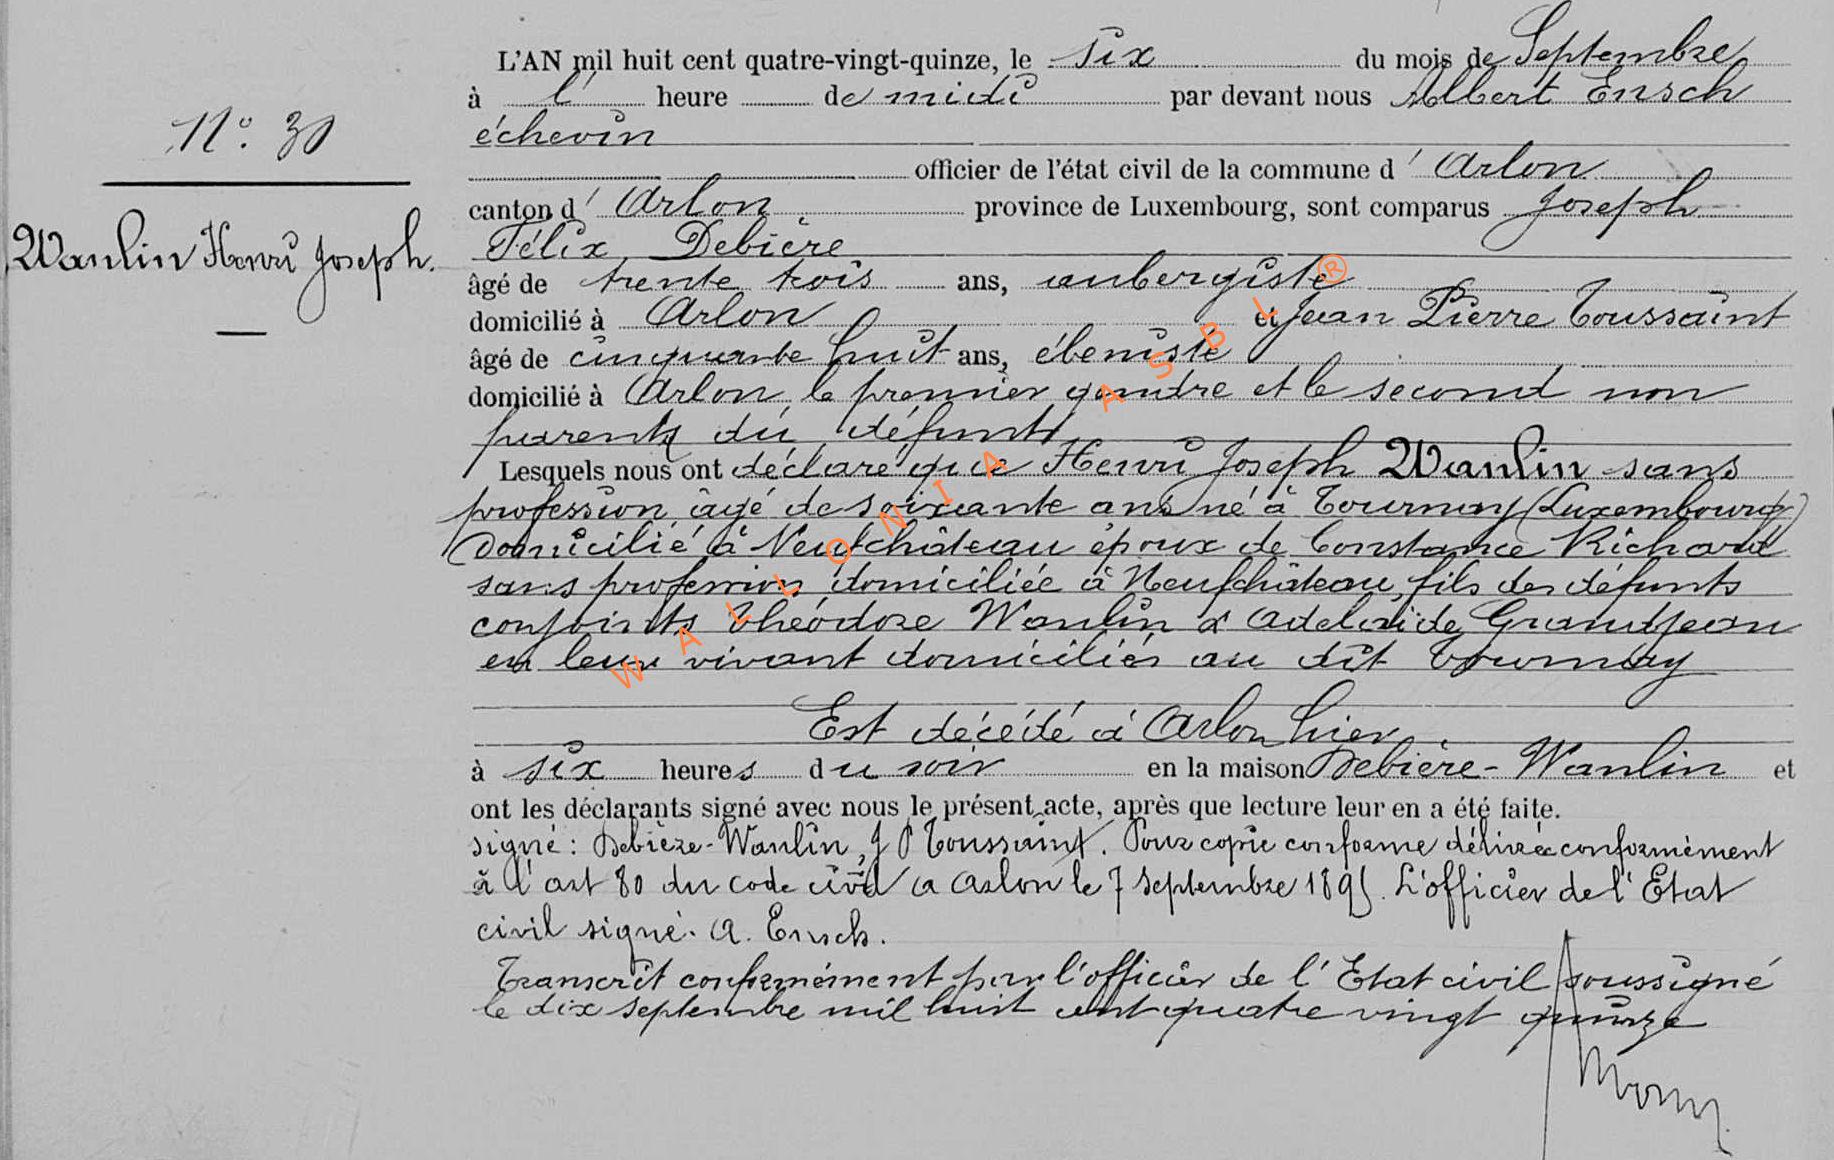 L'AN mil huit cent quatre-vingt-quinze, le six du mois de Septembre
à l' heure de midi par devant nous Albert Ensch
échevin
N°. 30
officier de l'état civil de la commune d' Arlon
canton d' Arlon province de Luxembourg, sont comparus Joseph
Wanlin Henri Joseph.
Félix Debière
âgé de trente trois ans, aubergiste
domicilié à Arlon et Jean Pierre Toussaint
âgé de cinquante huit ans, ébeniste
domicilié à Arlon, le premier gendre et le second non
parents du défunt
Lesquels nous ont déclaré que Henri Joseph Wanlin sans
profession, âgé de soixante ans né à Tournay (Luxembourg)
Domicilié à Neufchâteau époux de Constance Richard
sans profession domiciliée à Neufchâteau, fils des défunts
conjoints Théodore Wanlin & Adelaïde Grandjean
en leur vivant domiciliés au dit Tournay
Est décédé à Arlon hier
à six heures du soir en la maison Debière-Wanlin et
ont les déclarants signé avec nous le présent acte, après que lecture leur en a été faite.
signé: Debière-Wanlin, J P Toussaint. Pour copie conforme délivrée conformément
à l'art 80 du code civil à Arlon le 7 Septembre 1895. L'officier de l'Etat
civil signé. A. Ensch.
Transcrit conformément par l'officier de l'Etat civil soussigné
le dix septembre mil huit cent quatre vingt quinze
WALLONIA ASBL ®